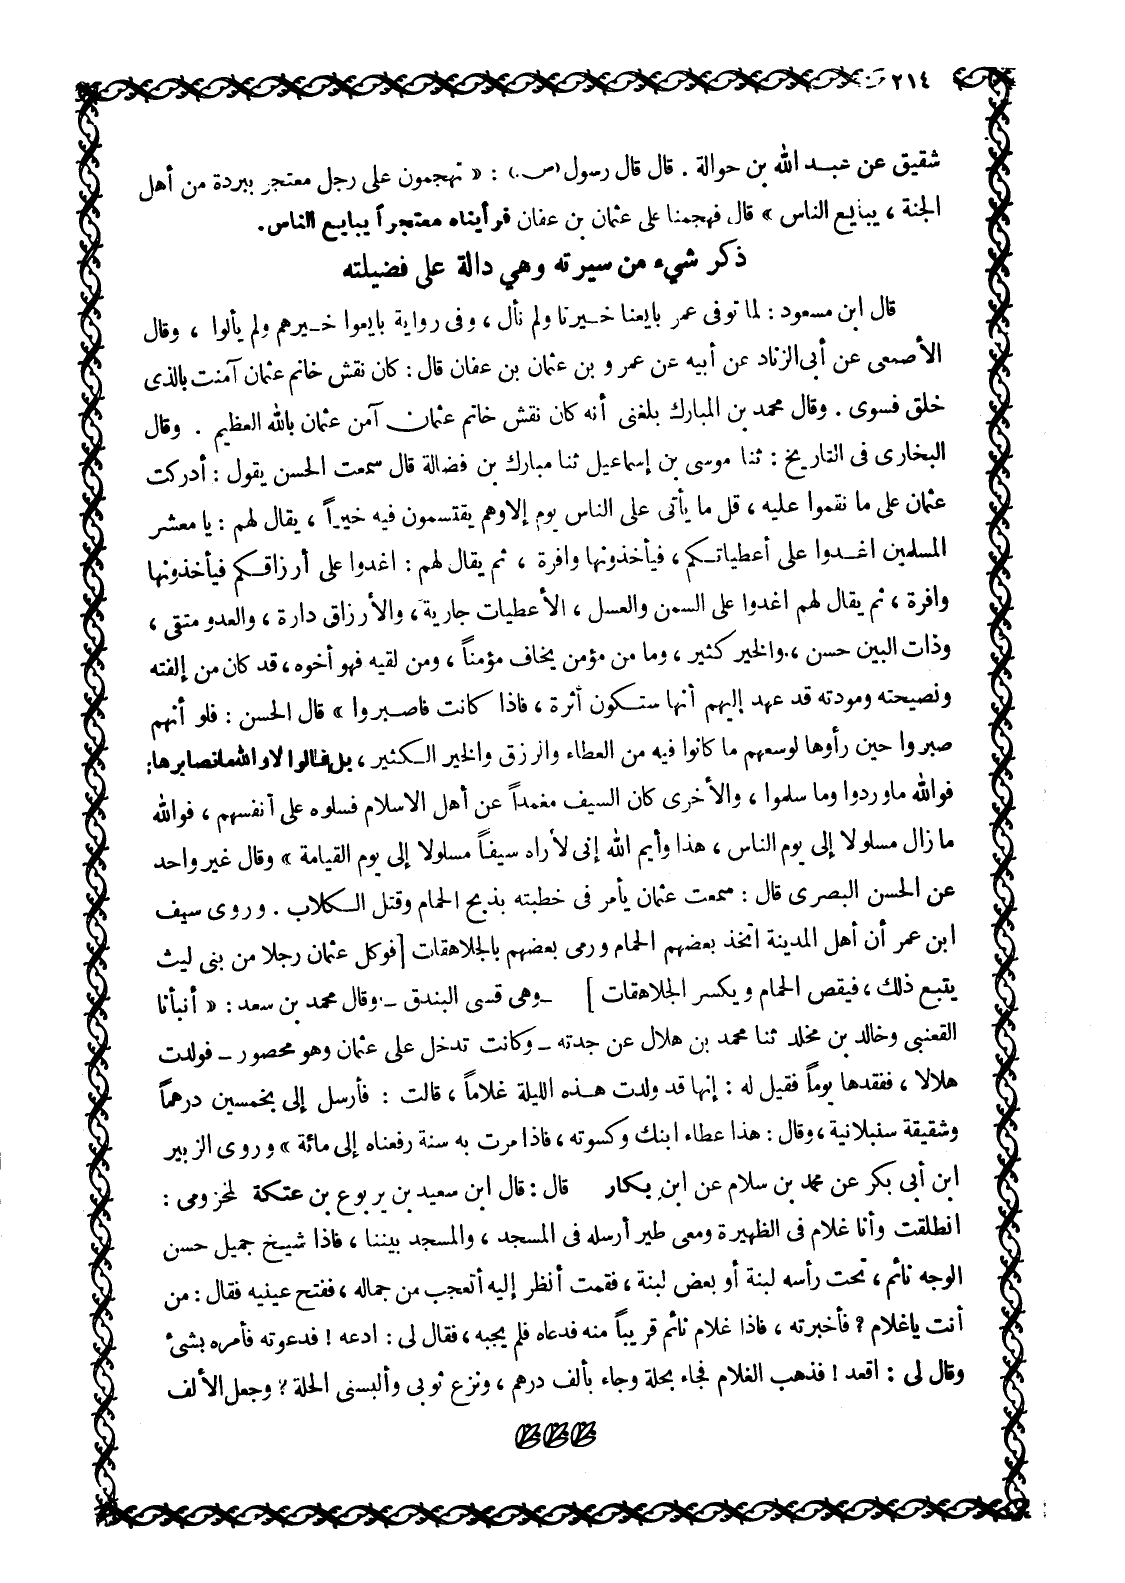 ٢١٤
شقيق عن عبد الله بن حوالة . قال قال رسول (ص.) : « تهجمون على رجل معتجر ببردة من أهل
الجنة ، يبايع الناس » قال فهجمنا على عثمان بن عفان فرأيناه معتجراً يبايع الناس.
ذكر شيء من سيرته وهي دالة على فضيلته
قال ابن مسعود : لما توفى عمر بايعنا خيرنا ولم نأل ، وفى رواية بايعوا خيرهم ولم يألوا ، وقال
الأصمعى عن أبى الزناد عن أبيه عن عمرو بن عثمان بن عفان قال : كان نقش خاتم عثمان آمنت بالذى
خلق فسوى . وقال محمد بن المبارك بلغنى أنه كان نقش خاتم عثمان آمن عثمان بالله العظيم . وقال
البخارى فى التاريخ : ثنا موسى بن إسماعيل ثنا مبارك بن فضالة قال سمعت الحسن يقول : أدركت
عثمان على ما نقموا عليه ، قل ما يأتى على الناس يوم إلا وهم يقتسمون فيه خيراً ، يقال لهم : يا معشر
المسلمين اغدوا على أعطياتكم ، فيأخذونها وافرة ، ثم يقال لهم : اغدوا على أرزاقكم فيأخذونها
وافرة ، ثم يقال لهم اغدوا على السمن والعسل ، الأعطيات جارية ، والأرزاق دارة ، والعدو متقى ،
وذات البين حسن ، والخير كثير ، وما من مؤمن يخاف مؤمناً ، ومن لقيه فهو أخوه ، قد كان من إلفته
ونصيحته ومودته قد عهد إليهم أنها ستكون أثرة ، فاذا كانت فاصبروا » قال الحسن : فلو أنهم
صبروا حين رأوها لوسعهم ما كانوا فيه من العطاء والرزق والخير الكثير ، بل قالوا لا والله ما نصابرها :
فوالله ما وردوا وما سلموا ، والأخرى كان السيف مغمداً عن أهل الاسلام فسلوه على أنفسهم ، فوالله
ما زال مسلولا إلى يوم الناس ، هذا وأيم الله إنى لأراه سيفاً مسلولا إلى يوم القيامة » وقال غير واحد
عن الحسن البصرى قال : سمعت عثمان يأمر فى خطبته بذبح الحمام وقتل الكلاب . وروى سيف
ابن عمر أن أهل المدينة اتخذ بعضهم الحمام ورمى بعضهم بالجلاهقات [فوكل عثمان رجلا من بنى ليث
يتبع ذلك ، فيقص الحمام ويكسر الجلاهقات ] ـ وهى قسى البندق ـ وقال محمد بن سعد : « أنبأنا
القعنبى وخالد بن مخلد ثنا محمد بن هلال عن جدته ـ وكانت تدخل على عثمان وهو محصور ـ فولدت
هلالا ، ففقدها يوماً فقيل له : إنها قد ولدت هذه الليلة غلاماً ، قالت : فأرسل إلى بخمسين درهماً
وشقيقة سنبلانية ، وقال : هذا عطاء ابنك وكسوته ، فاذا مرت به سنة رفعناه إلى مائة » وروى الزبير
ابن أبى بكر عن محمد بن سلام عن ابن بكار قال : قال ابن سعيد بن يربوع بن عتكة لمخزومى :
انطلقت وأنا غلام فى الظهيرة ومعى طير أرسله فى المسجد ، والمسجد بيننا ، فاذا شيخ جميل حسن
الوجه نائم ، تحت رأسه لبنة أو بعض لبنة ، فقمت أنظر إليه أتعجب من جماله ، ففتح عينيه فقال : من
أنت يا غلام ؟ فأخبرته ، فاذا غلام نائم قريباً منه فدعاه فلم يجبه ، فقال لى : ادعه ! فدعوته فأمره بشئ
وقال لى : اقعد ! فذهب الغلام فجاء بحلة وجاء بألف درهم ، ونزع ثوبى وألبسنى الحلة ؟ وجعل الألف